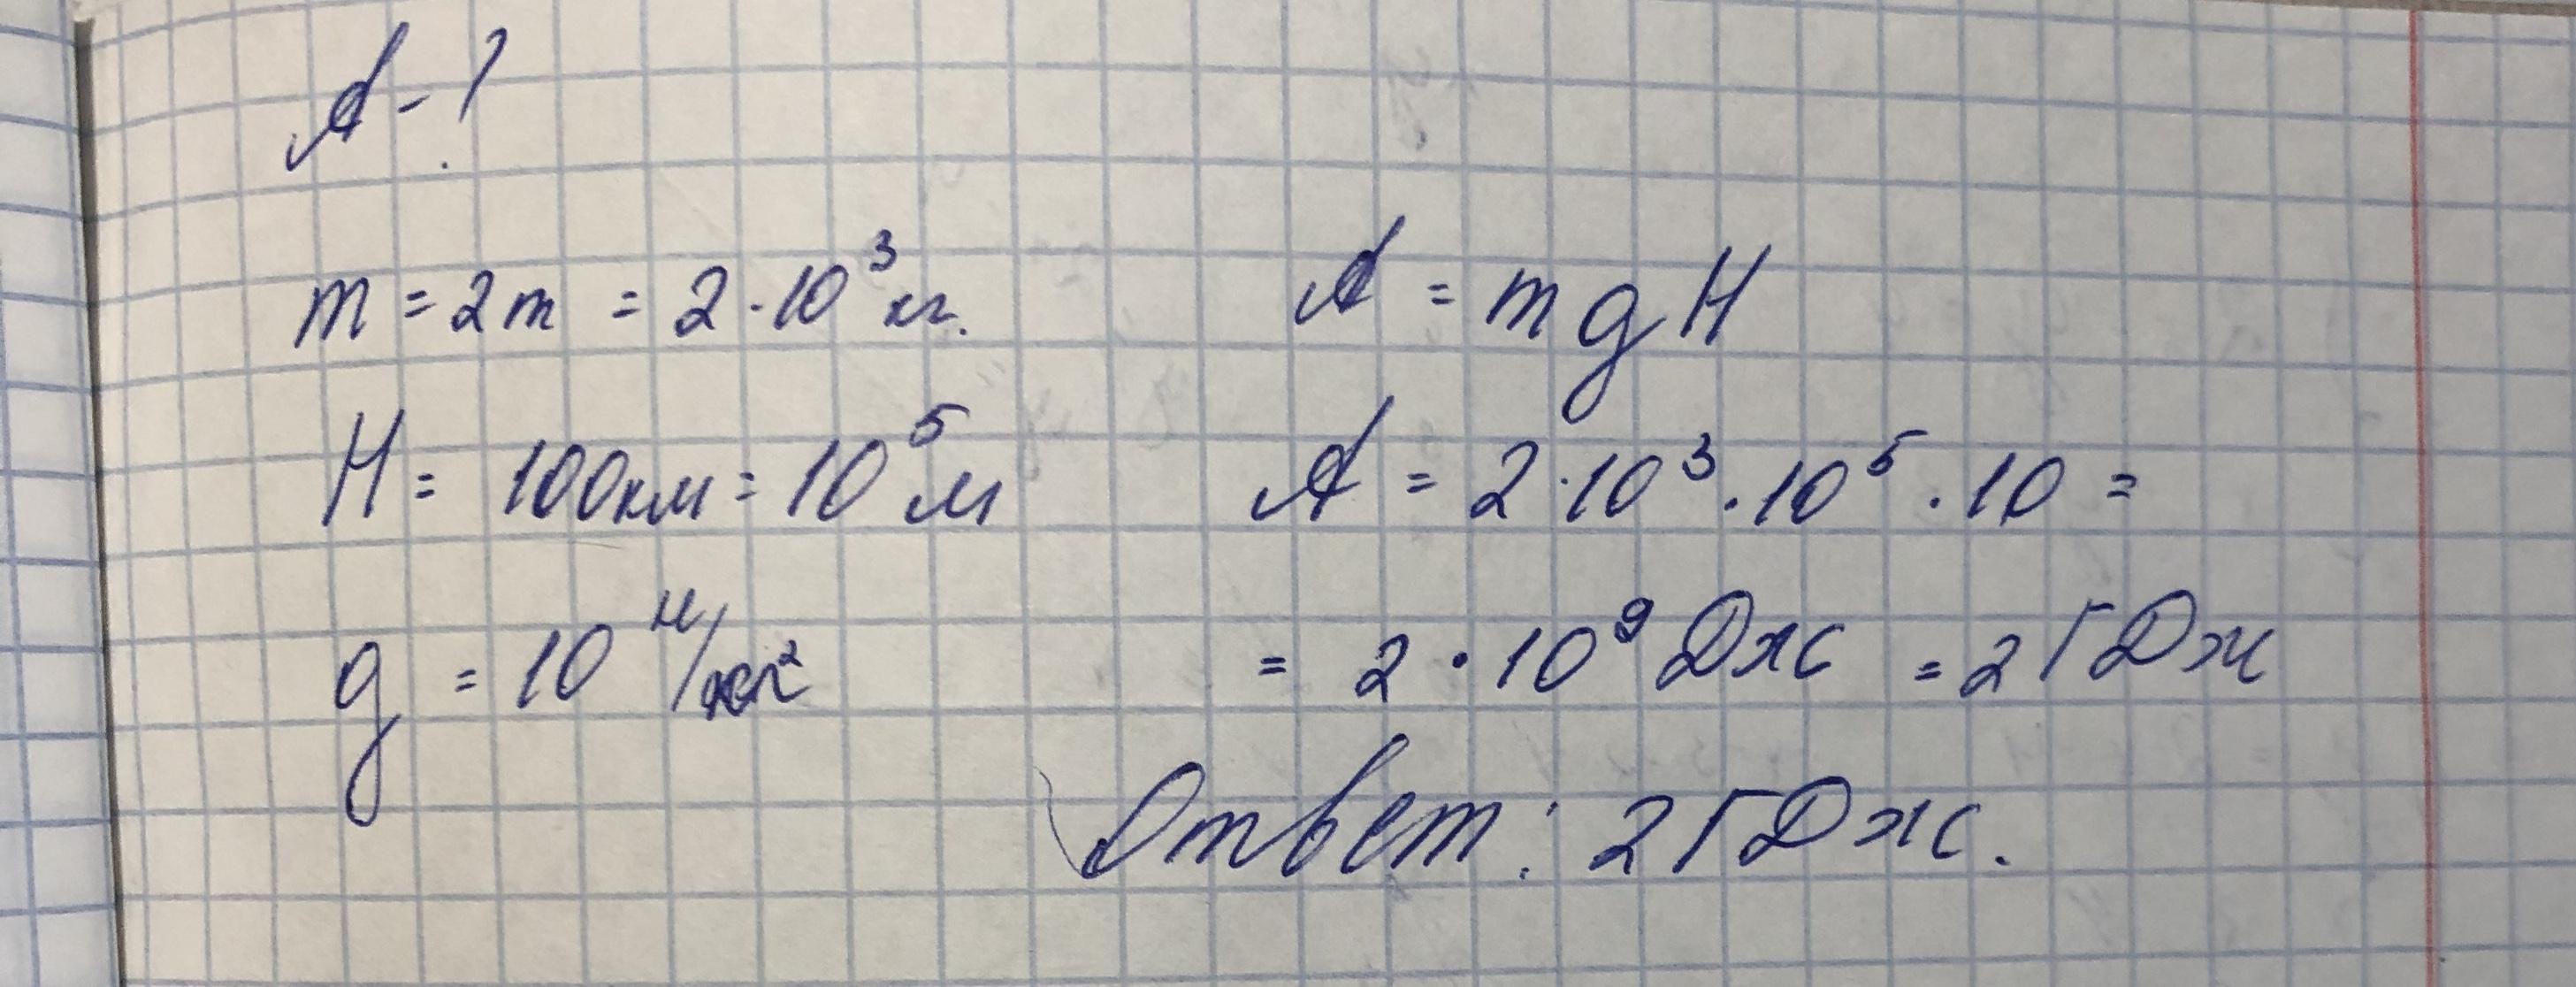 A - ?
m = 2т = 2·10³ кг.
H = 100км = 10⁵ м
g = 10 м/
A = mgH
A = 2·10³·10⁵·10 =
= 2·10⁹ Дж = 2ГДж
Ответ: 2ГДж.